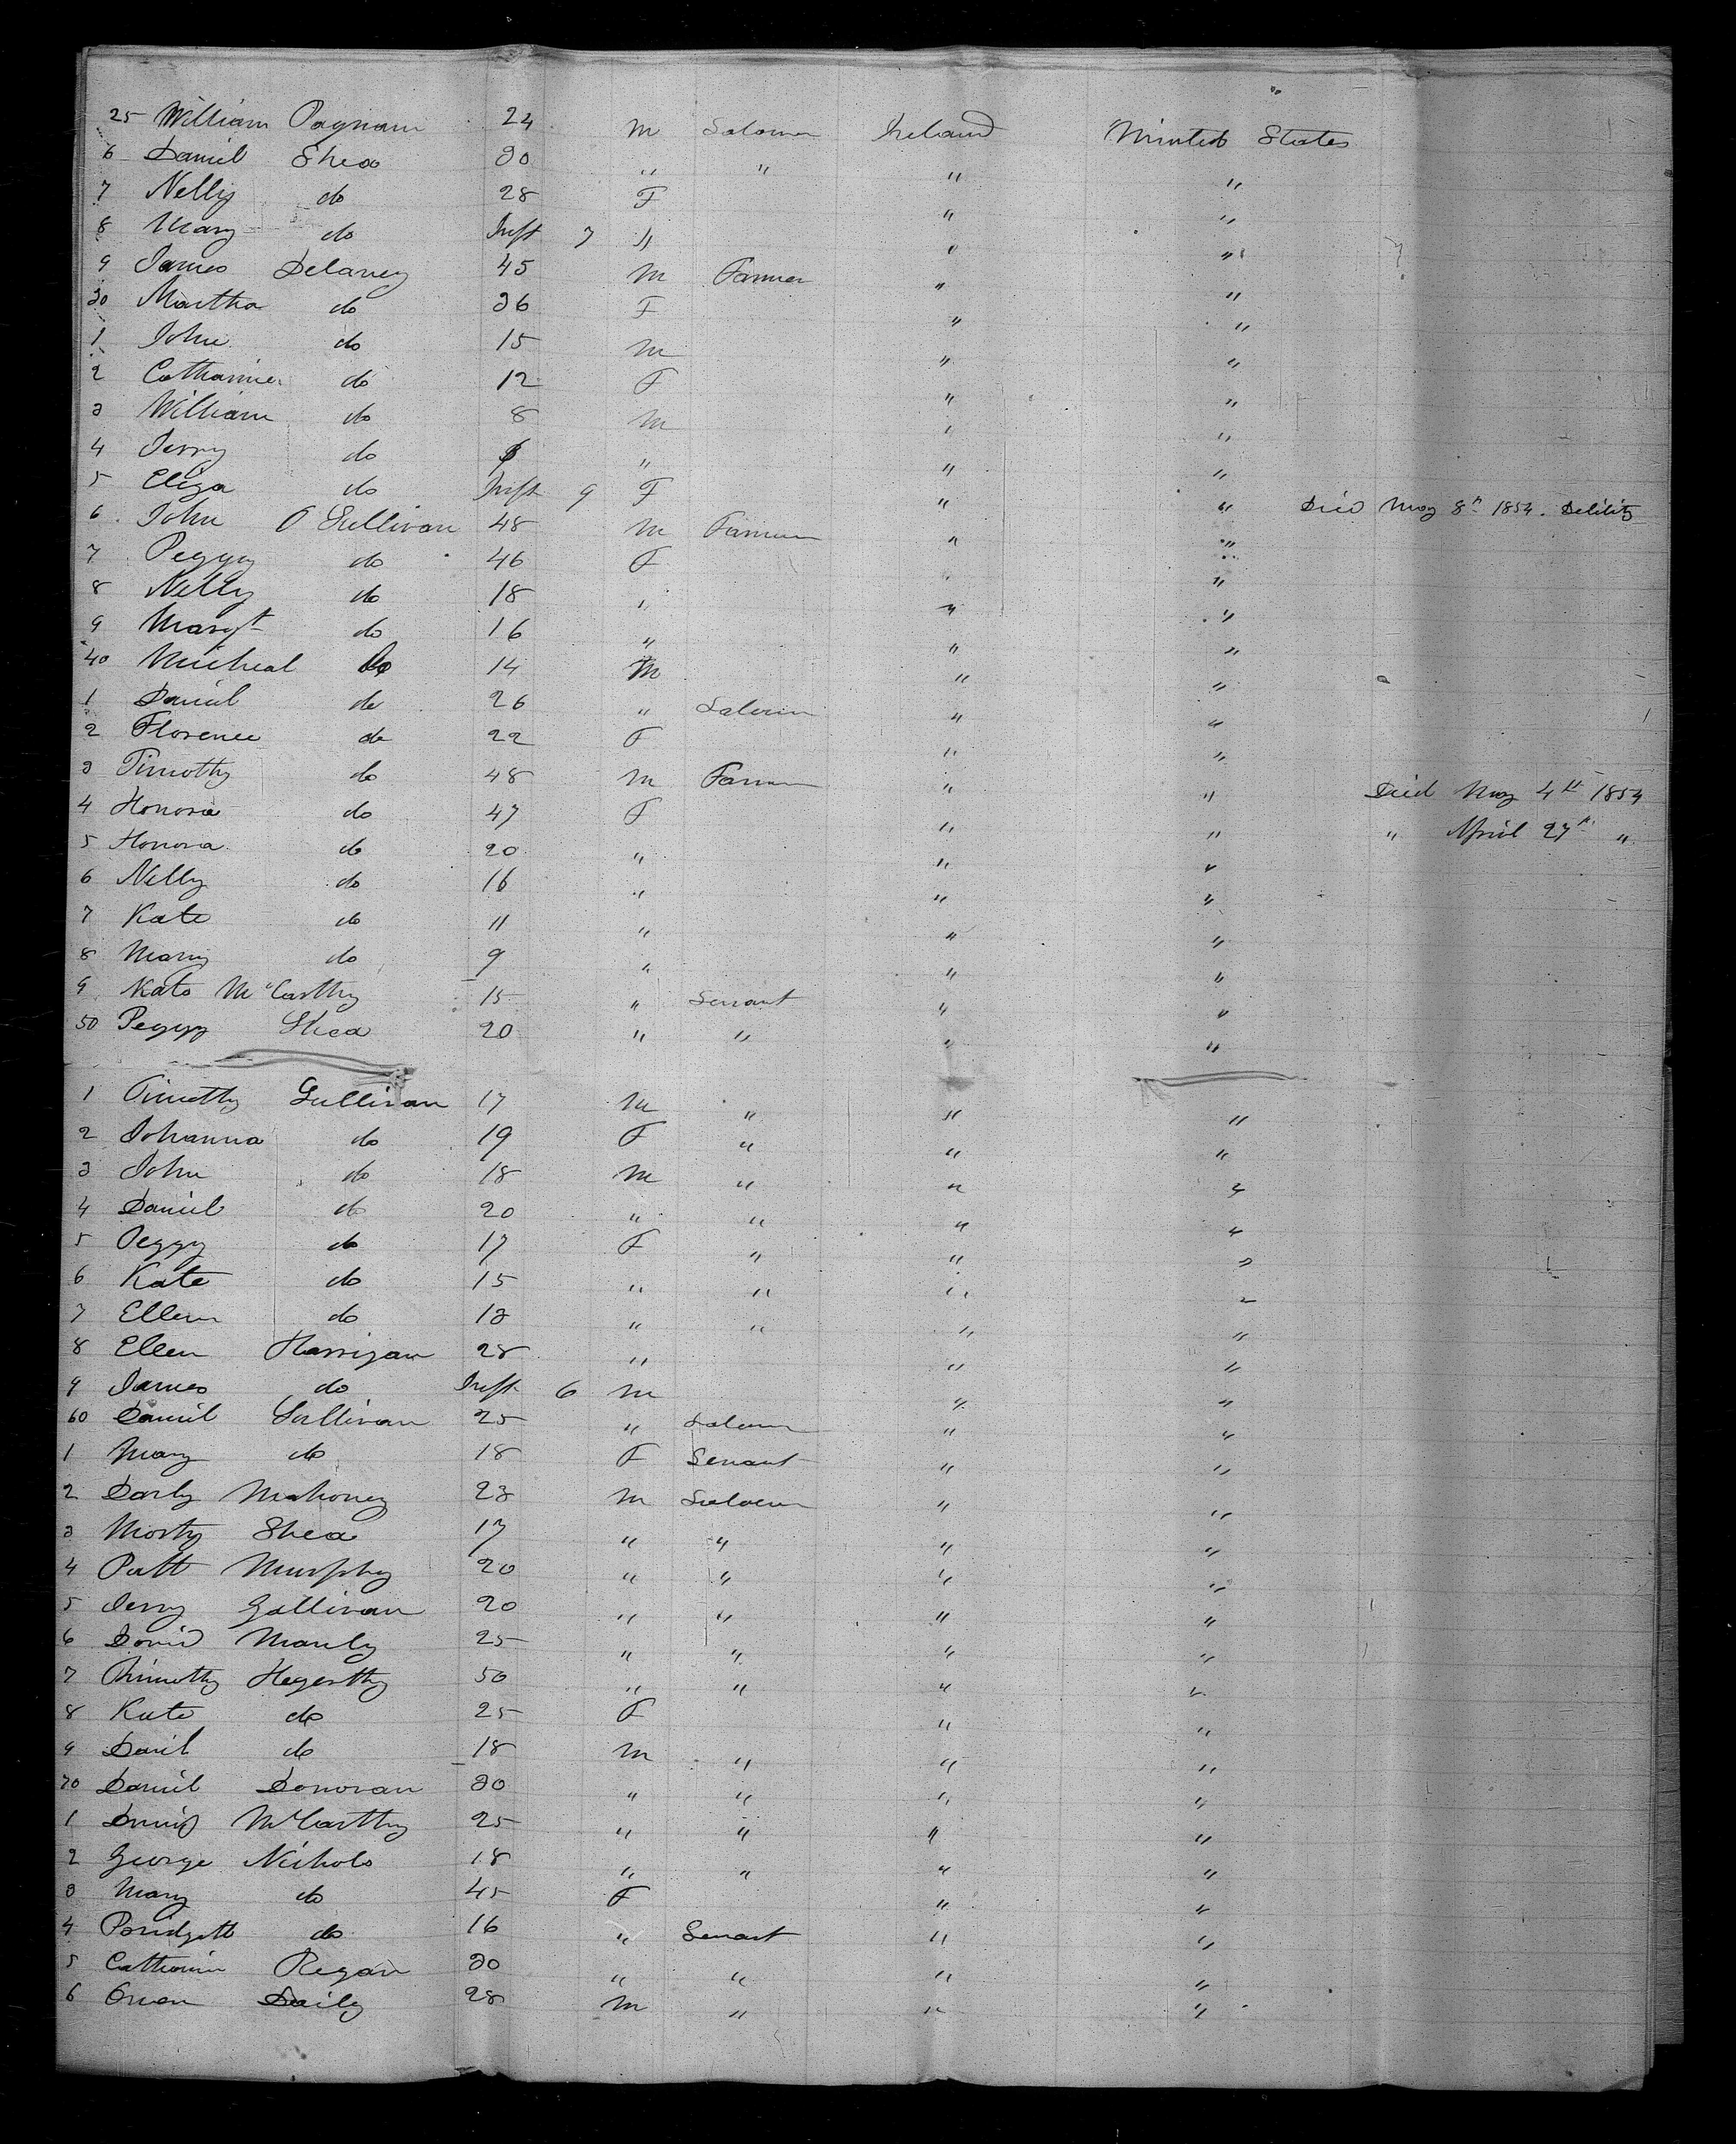 25 William Pagnam 24 M Laborer Ireland United States
6 Daniel Shea 30 " " " "
7 Nelly do 28 F " "
8 Mary do Inft 7 " " "
9 James Delaney 45 M Farmer " "
30 Martha do 36 F " "
1 John do 15 M " "
2 Catharine do 12 F " "
3 William do 8 M " "
4 Jerry do " " "
5 Eliza do Inft 9 F " " Died May 8th 1854. Debility
6 John O Sullivan 48 M Farmer " "
7 Peggy do 46 F " "
8 Nelly do 18 " " "
9 Margt do 16 " " "
40 Micheal Do 14 M " "
1 Daniel do 26 " Laborer " "
2 Florence do 22 F " "
3 Timothy do 48 M Farmer " " Died May 4th 1854
4 Honora do 47 F " " " April 27th "
5 Honora do 20 " " "
6 Nelly do 16 " " "
7 Kate do 11 " " "
8 Mary do 9 " " "
9 Kate McCarthy 15 " Servant " "
50 Peggy Shea 20 " " " "
1 Timothy Sullivan 17 M " " "
2 Johanna do 19 F " " "
3 John do 18 M " " "
4 Daniel do 20 " " " "
5 Peggy do 17 F " " "
6 Kate do 15 " " " "
7 Ellen do 13 " " " "
8 Ellen Harrigan 28 " " "
9 James do Inft 6 M " "
60 Daniel Sullivan 25 " Laborer " "
1 Mary do 18 F Servant " "
2 Darby Mahoney 23 M Laborer " "
3 Morty Shea 17 " " " "
4 Patt Murphy 20 " " " "
5 Jerry Gallivan 20 " " " "
6 David Manly 25 " " " "
7 Timothy Hegerthy 50 " " " "
8 Kate do 25 F " "
9 do 18 M " " "
70 Daniel Donovan 30 " " " "
1 McCarthy 25 " " " "
2 George Nichols 18 " " " "
3 Mary do 45 F " "
4 Bridgett do 16 " Servant " "
5 Catharine Regan 30 " " " "
6 Owen Daily 28 M " " "